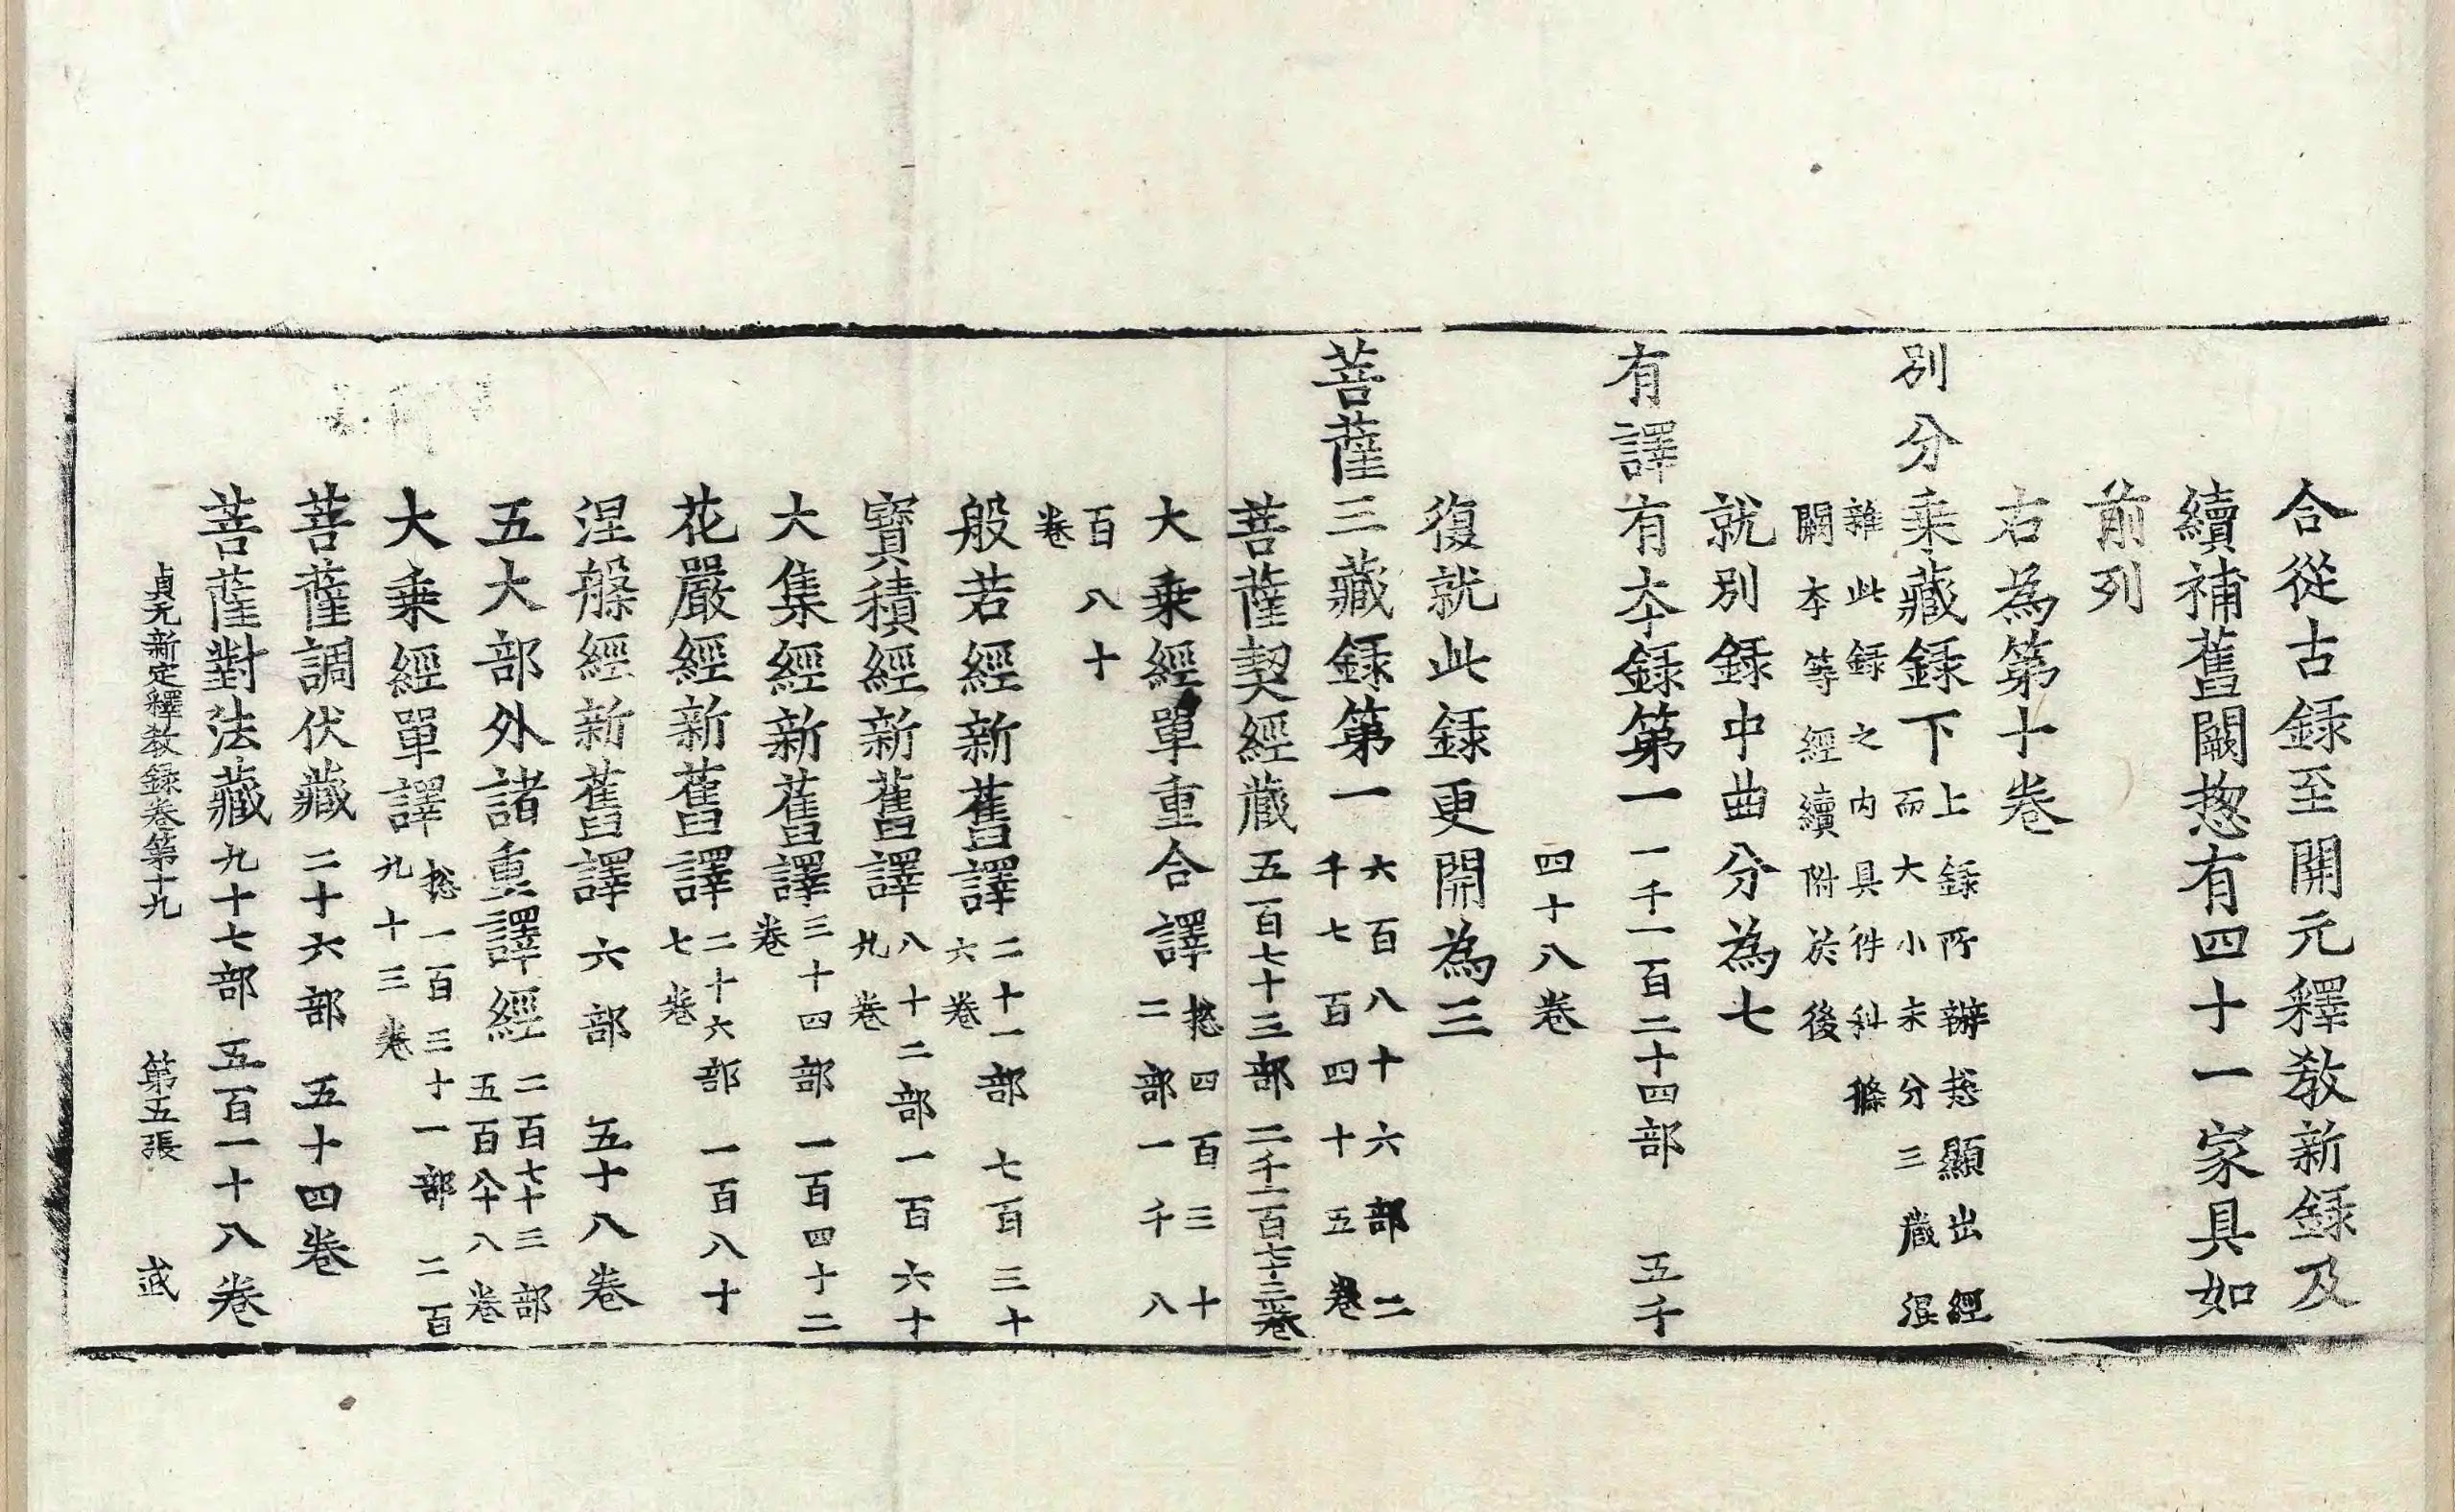 合從古録至開元釋敎新録及
續補舊闕惣有四十一家具如
前列
右為第十卷
別分乘藏録下上録所辯惣顯出經
而大小未分三藏混
雜此録之内具件科條
闕本等經續附於後
就別録中曲分為七
有譯有本録第一一千一百二十四部 五千
四十八卷
復就此録更開為三
菩薩三藏録第一六百八十六部二
千七百四十五卷
菩薩契經藏五百七十三部 二千一百七十三卷
大乗經單重合譯惣四百三十
二部一千八
百八十
卷
般若經新舊譯二十一部 七百三十
六卷
寶積經新舊譯八十二部一百六十
九卷
大集經新舊譯三十四部一百四十二
卷
花嚴經新舊譯二十六部 一百八十
七卷
涅槃經新舊譯六部 五十八卷
五大部外諸重譯經二百七十三部
五百八十八卷
大乗經單譯惣一百三十一部 二百
九十三卷
菩薩調伏藏二十六部 五十四卷
菩薩對法藏九十七部 五百一十八卷
貞元新定釋敎録卷第十九 第五張 㦲